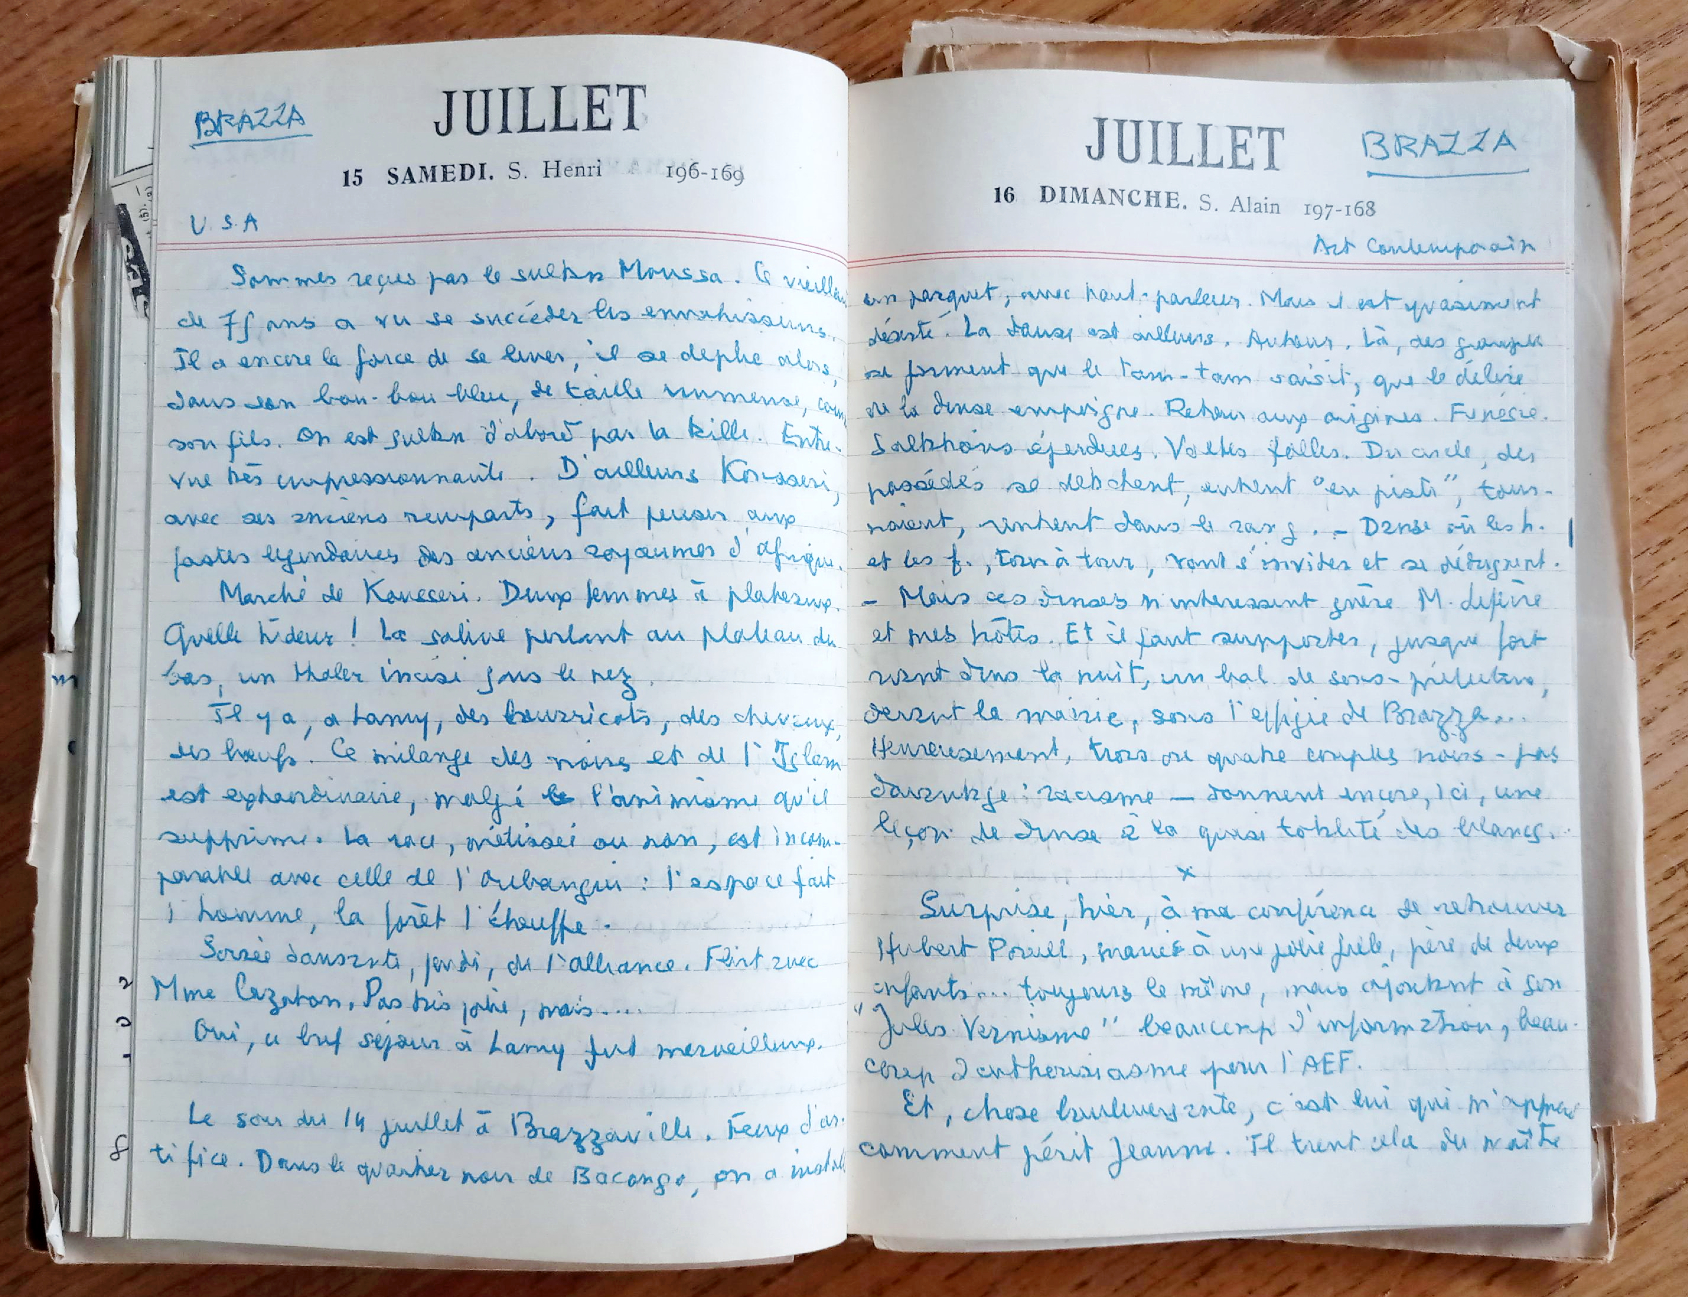 BRAZZA
JUILLET
15 SAMEDI. S. Henri 196-169
U.S.A
Sommes reçus par le sultan Moussa. Ce vieillard
de 75 ans a vu se succéder les envahisseurs.
Il a encore la force de se lever, il se déplie alors,
dans son bou-bou bleu, de taille immense, comme
son fils. On est sultan d'abord par la taille. Entre-
vue très impressionnante. D'ailleurs Kousseri,
avec ses anciens remparts, fait penser aux
fastes légendaires des anciens royaumes d'Afrique.
Marché de Kousseri. Deux femmes à plateaux.
Quelle hideur ! La salive perlant au plateau du
bas, un thaler incisé sous le nez.
Il y a, à Lamy, des bourricots, des chevaux,
des bœufs. Ce mélange des noirs et de l'Islam
est extraordinaire, malgré l'animisme qu'il
supprime. La race, métissée ou non, est incom-
parable avec celle de l'Oubangui : l'espace fait
l'homme, la forêt l'étouffe.
Soirée dansante, jeudi, de l'alliance. Flirt avec
Mme Cazaban. Pas très jolie, mais....
Oui, ce bref séjour à Lamy fut merveilleux.
Le soir du 14 juillet à Brazzaville. Feux d'ar-
tifice. Dans le quartier noir de Bacongo, on a installé
JUILLET
BRAZZA
16 DIMANCHE. S. Alain 197-168
Art Contemporain
un parquet, avec haut-parleur. Mais il est quasiment
déserté. La danse est ailleurs. Autour. Là, des groupes
se forment que le tam-tam saisit, que le délire
de la danse empoigne. Retour aux origines. Frénésie.
Saltations éperdues. Voltes folles. Du cercle, des
possédés se détachent, entrent "en piste", tour-
noient, rentrent dans le rang. - Danse où les h.
et les f., tour à tour, vont s'inviter et se désignent.
- Mais ces danses n'intéressent guère M. Lefèvre
et mes hôtes. Et il faut supporter, jusque fort
avant dans la nuit, un bal de sous-préfecture,
devant la mairie, sous l'effigie de Brazza...
Heureusement, trois ou quatre couples noirs - pas
davantage : racisme — donnent encore, ici, une
leçon de danse à la quasi totalité des blancs.
x
Surprise, hier, à ma conférence de retrouver
Hubert, marié à une jolie fille, père de deux
enfants... toujours le même, mais ajoutant à son
"Jules Vernisme" beaucoup d'information, beau-
coup d'enthousiasme pour l'AEF.
Et, chose bouleversante, c'est lui qui m'apprend
comment périt Jeanne. Il tient cela du maître